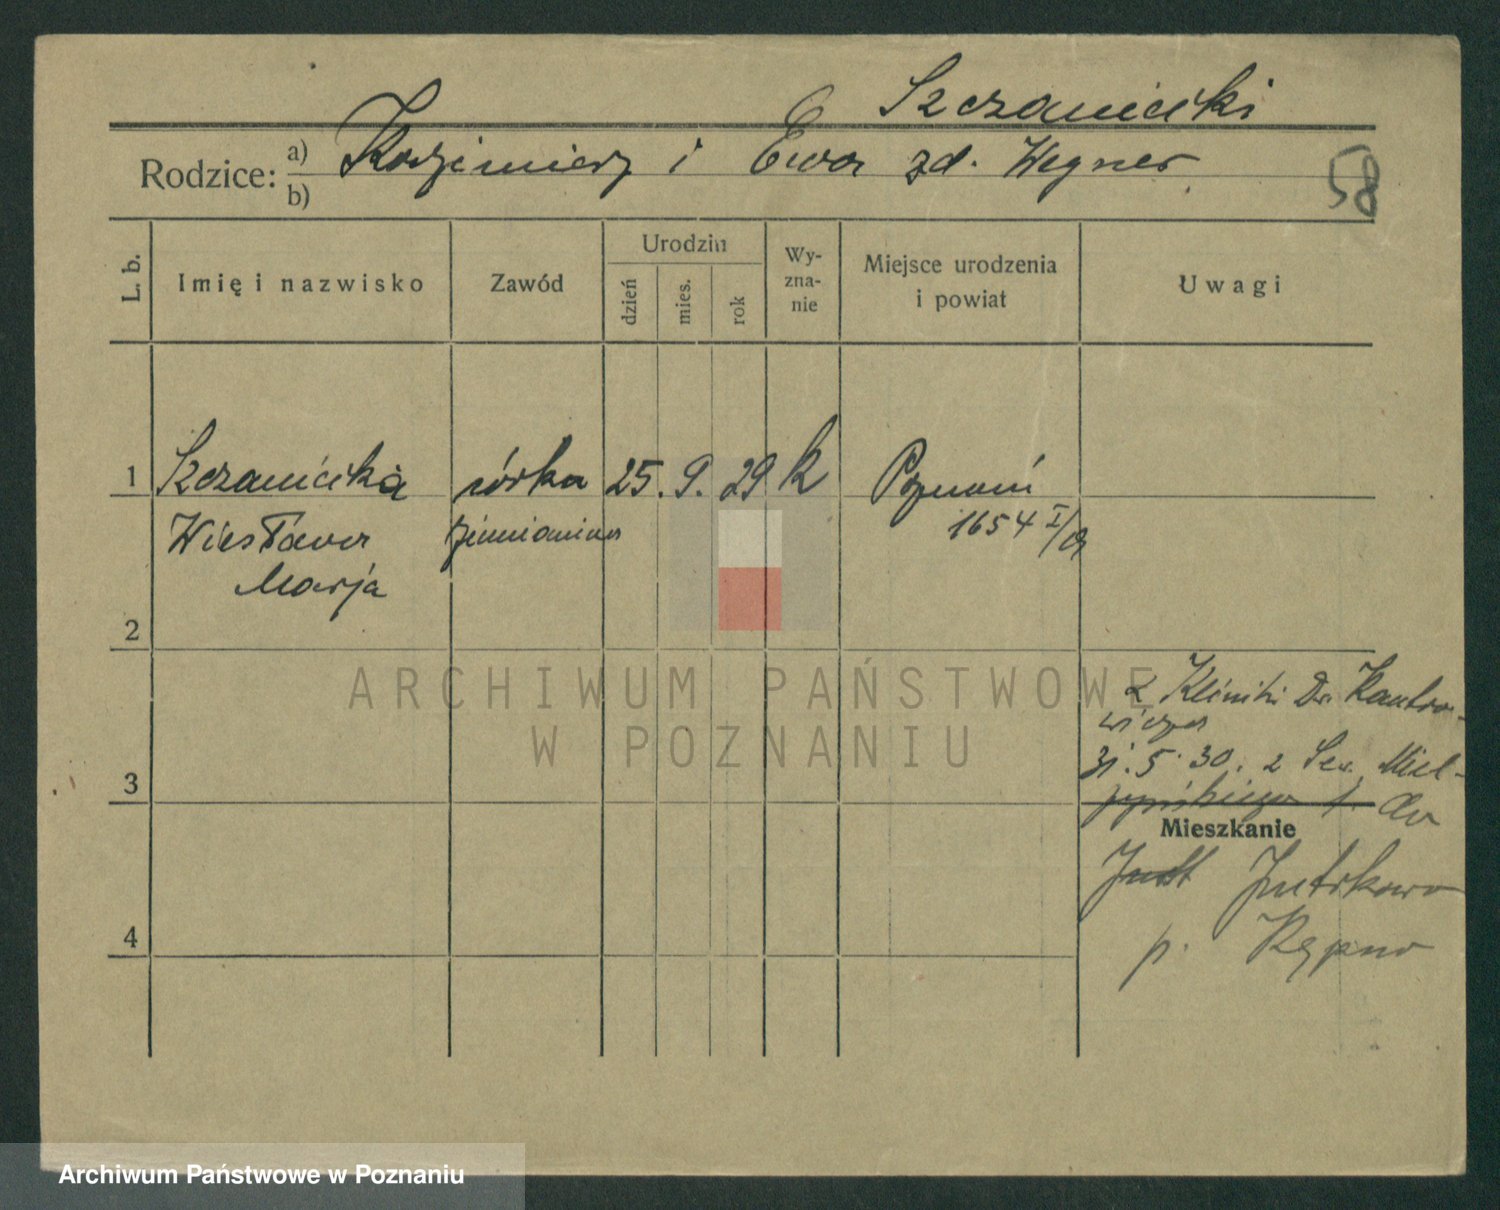 Szczaniecki
Rodzice: a) Kazimierz i Ewa zd. Wegner
b)
58
L. b.
Imię i nazwisko
Zawód
Urodzin
dzień
mies.
rok
Wy-
zna-
nie
Miejsce urodzenia
i powiat
Uwagi
1 Szczaniecka córka 25. 9. 29 k Poznań
Wiesława ziemianina 1654 I/
Marja
2
z Kliniki Dr. Kantro-
wicza
31. 5. 30. z Sew. Miel-
żyńskiego 1. do
3
Mieszkanie
Jutrkowo
p. Kępno
4
ARCHIWUM PAŃSTWOWE
W POZNANIU
Archiwum Państwowe w Poznaniu